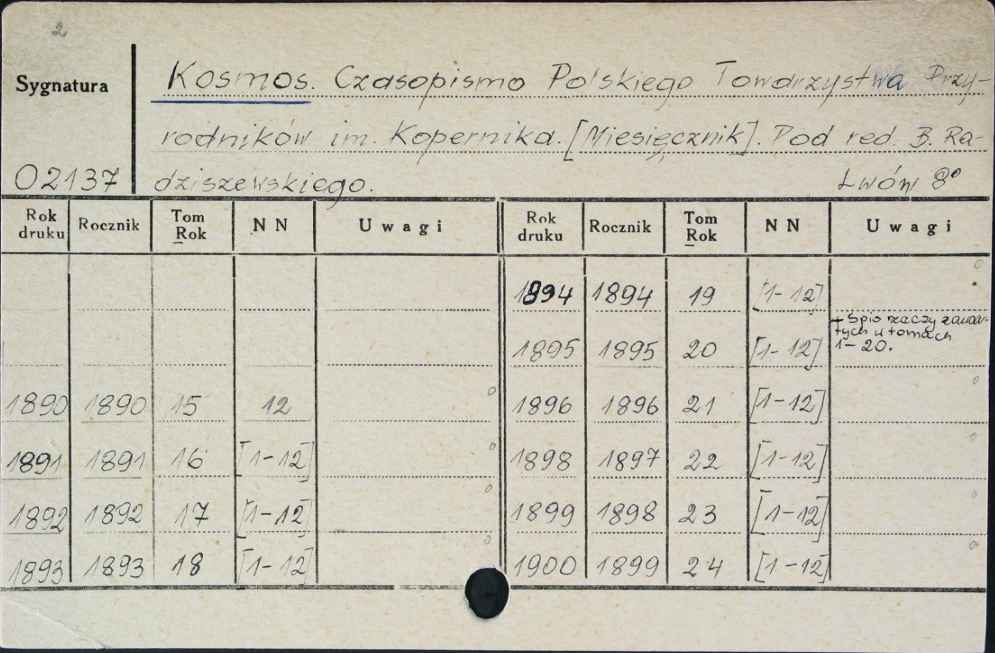 2
Sygnatura
Kosmos. Czasopismo Polskiego Towarzystwa Przy-
rodników im. Kopernika. [Miesięcznik]. Pod red. B. Ra-
02137 dziszewskiego. Lwów 8°
Rok druku Rocznik Tom Rok NN Uwagi Rok druku Rocznik Tom Rok NN Uwagi
1894 1894 19 [1-12]
1895 1895 20 [1-12] + Spis rzeczy zawar-
tych w tomach
1-20.
1890 1890 15 12 1896 1896 21 [1-12]
1891 1891 16 [1-12] 1898 1897 22 [1-12]
1892 1892 17 [1-12] 1899 1898 23 [1-12]
1893 1893 18 [1-12] 1900 1899 24 [1-12]